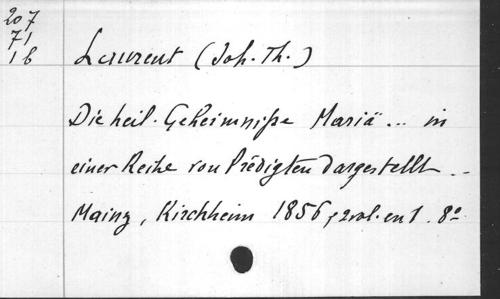 207
71
16
Laurent (Joh. Th.)
Die heil. Geheimniße Mariä ... in
einer Reihe von Predigten dargestellt ...
Mainz, Kirchheim 1856, 2 vol. en 1. 8º